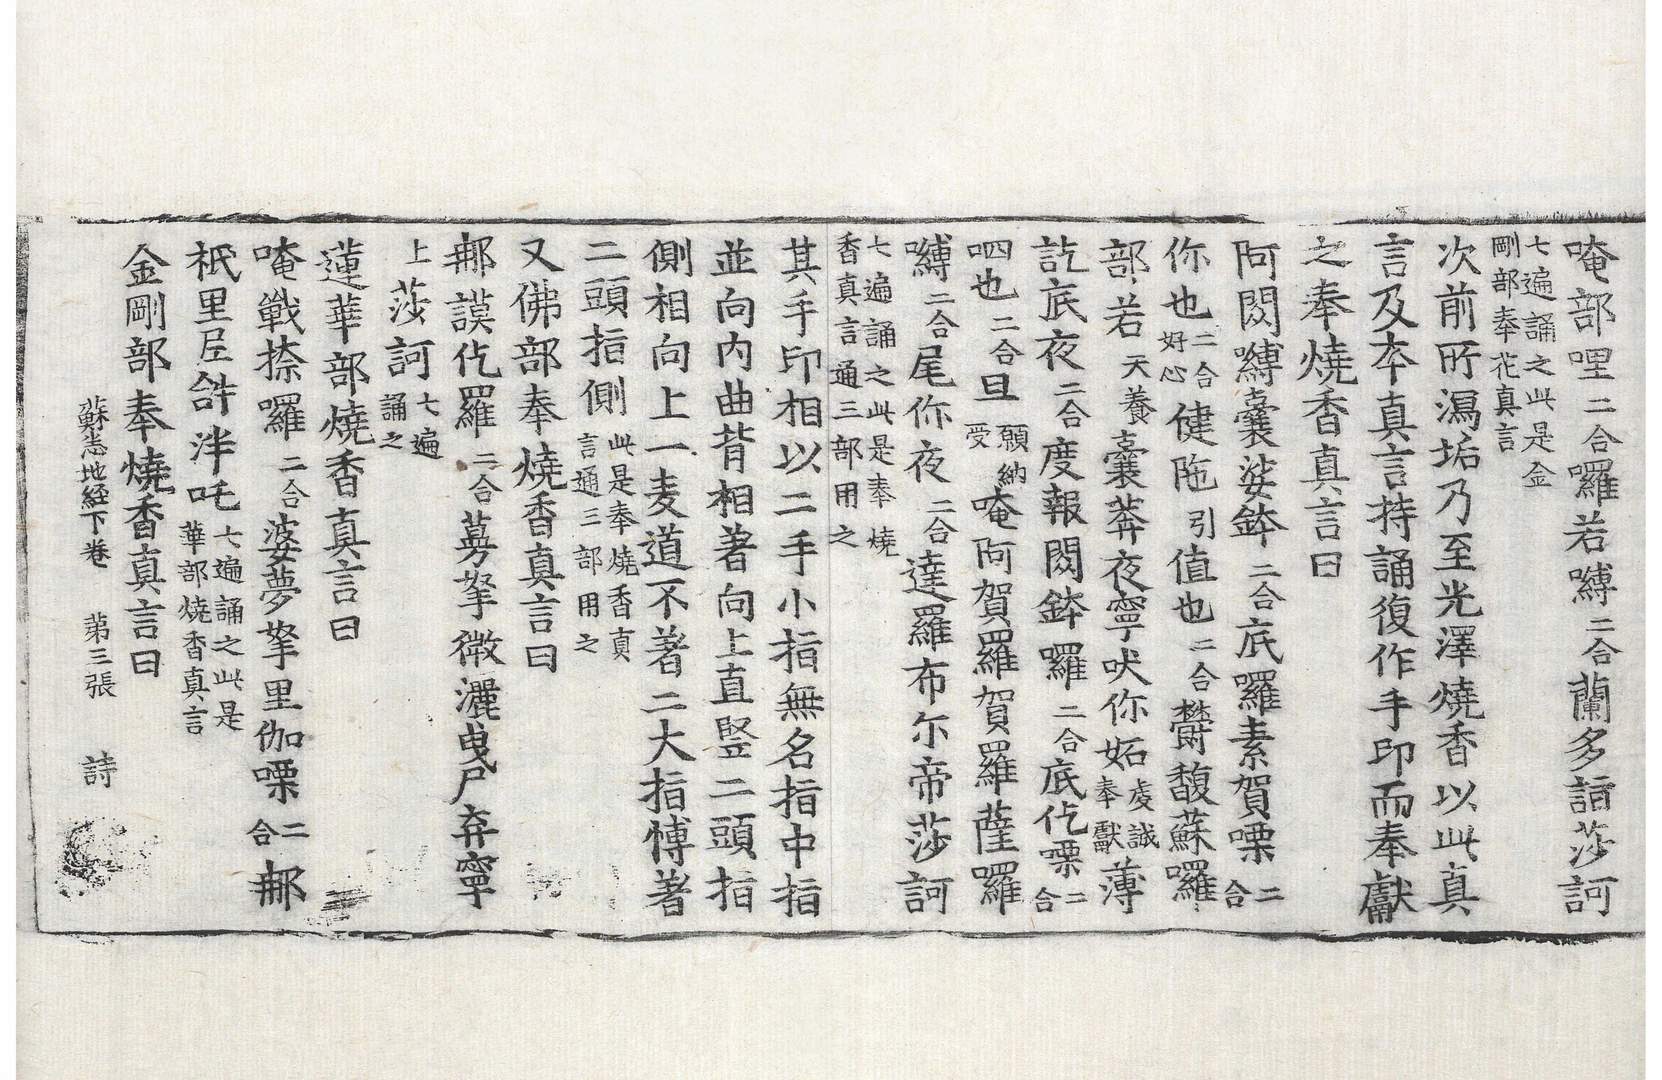 唵部哩二合囉若嚩二合蘭多訶莎訶
七遍誦之此是金
剛部奉花真言
次前所濕垢乃至光澤燒香以此真
言及本真言持誦復作手印而奉獻
之奉燒香真言曰
阿閦嚩囊娑鉢二合底囉素賀㗚二合
你也二合好心健陁引值也二合欝馥蘇囉
部若天養囊莾夜寧吠你妬虔誠奉獻薄
訖底夜二合度報閦鉢囉二合底仡㗚二合
呬也二合旦願納受唵阿賀羅賀羅薩羅
嚩二合尾你夜二合達羅布尓帝莎訶
七遍誦之此是奉燒
香真言通三部用之
其手印相以二手小指無名指中指
並向內曲背相著向上直竪二頭指
側相向上一麦道不著二大指愽著
二頭指側此是奉燒香真言通三部用之
又佛部奉燒香真言曰
那謨仡羅二合蒭拏微灑曳尸弃寧
上莎訶七遍誦之
蓮華部燒香真言曰
唵戰捺囉二合婆夢拏里伽㗚二合那
祇里㞐𤙖泮吒七遍誦之此是華部燒香真言
金剛部奉燒香真言曰
蘇悉地經下卷 第三張 詩